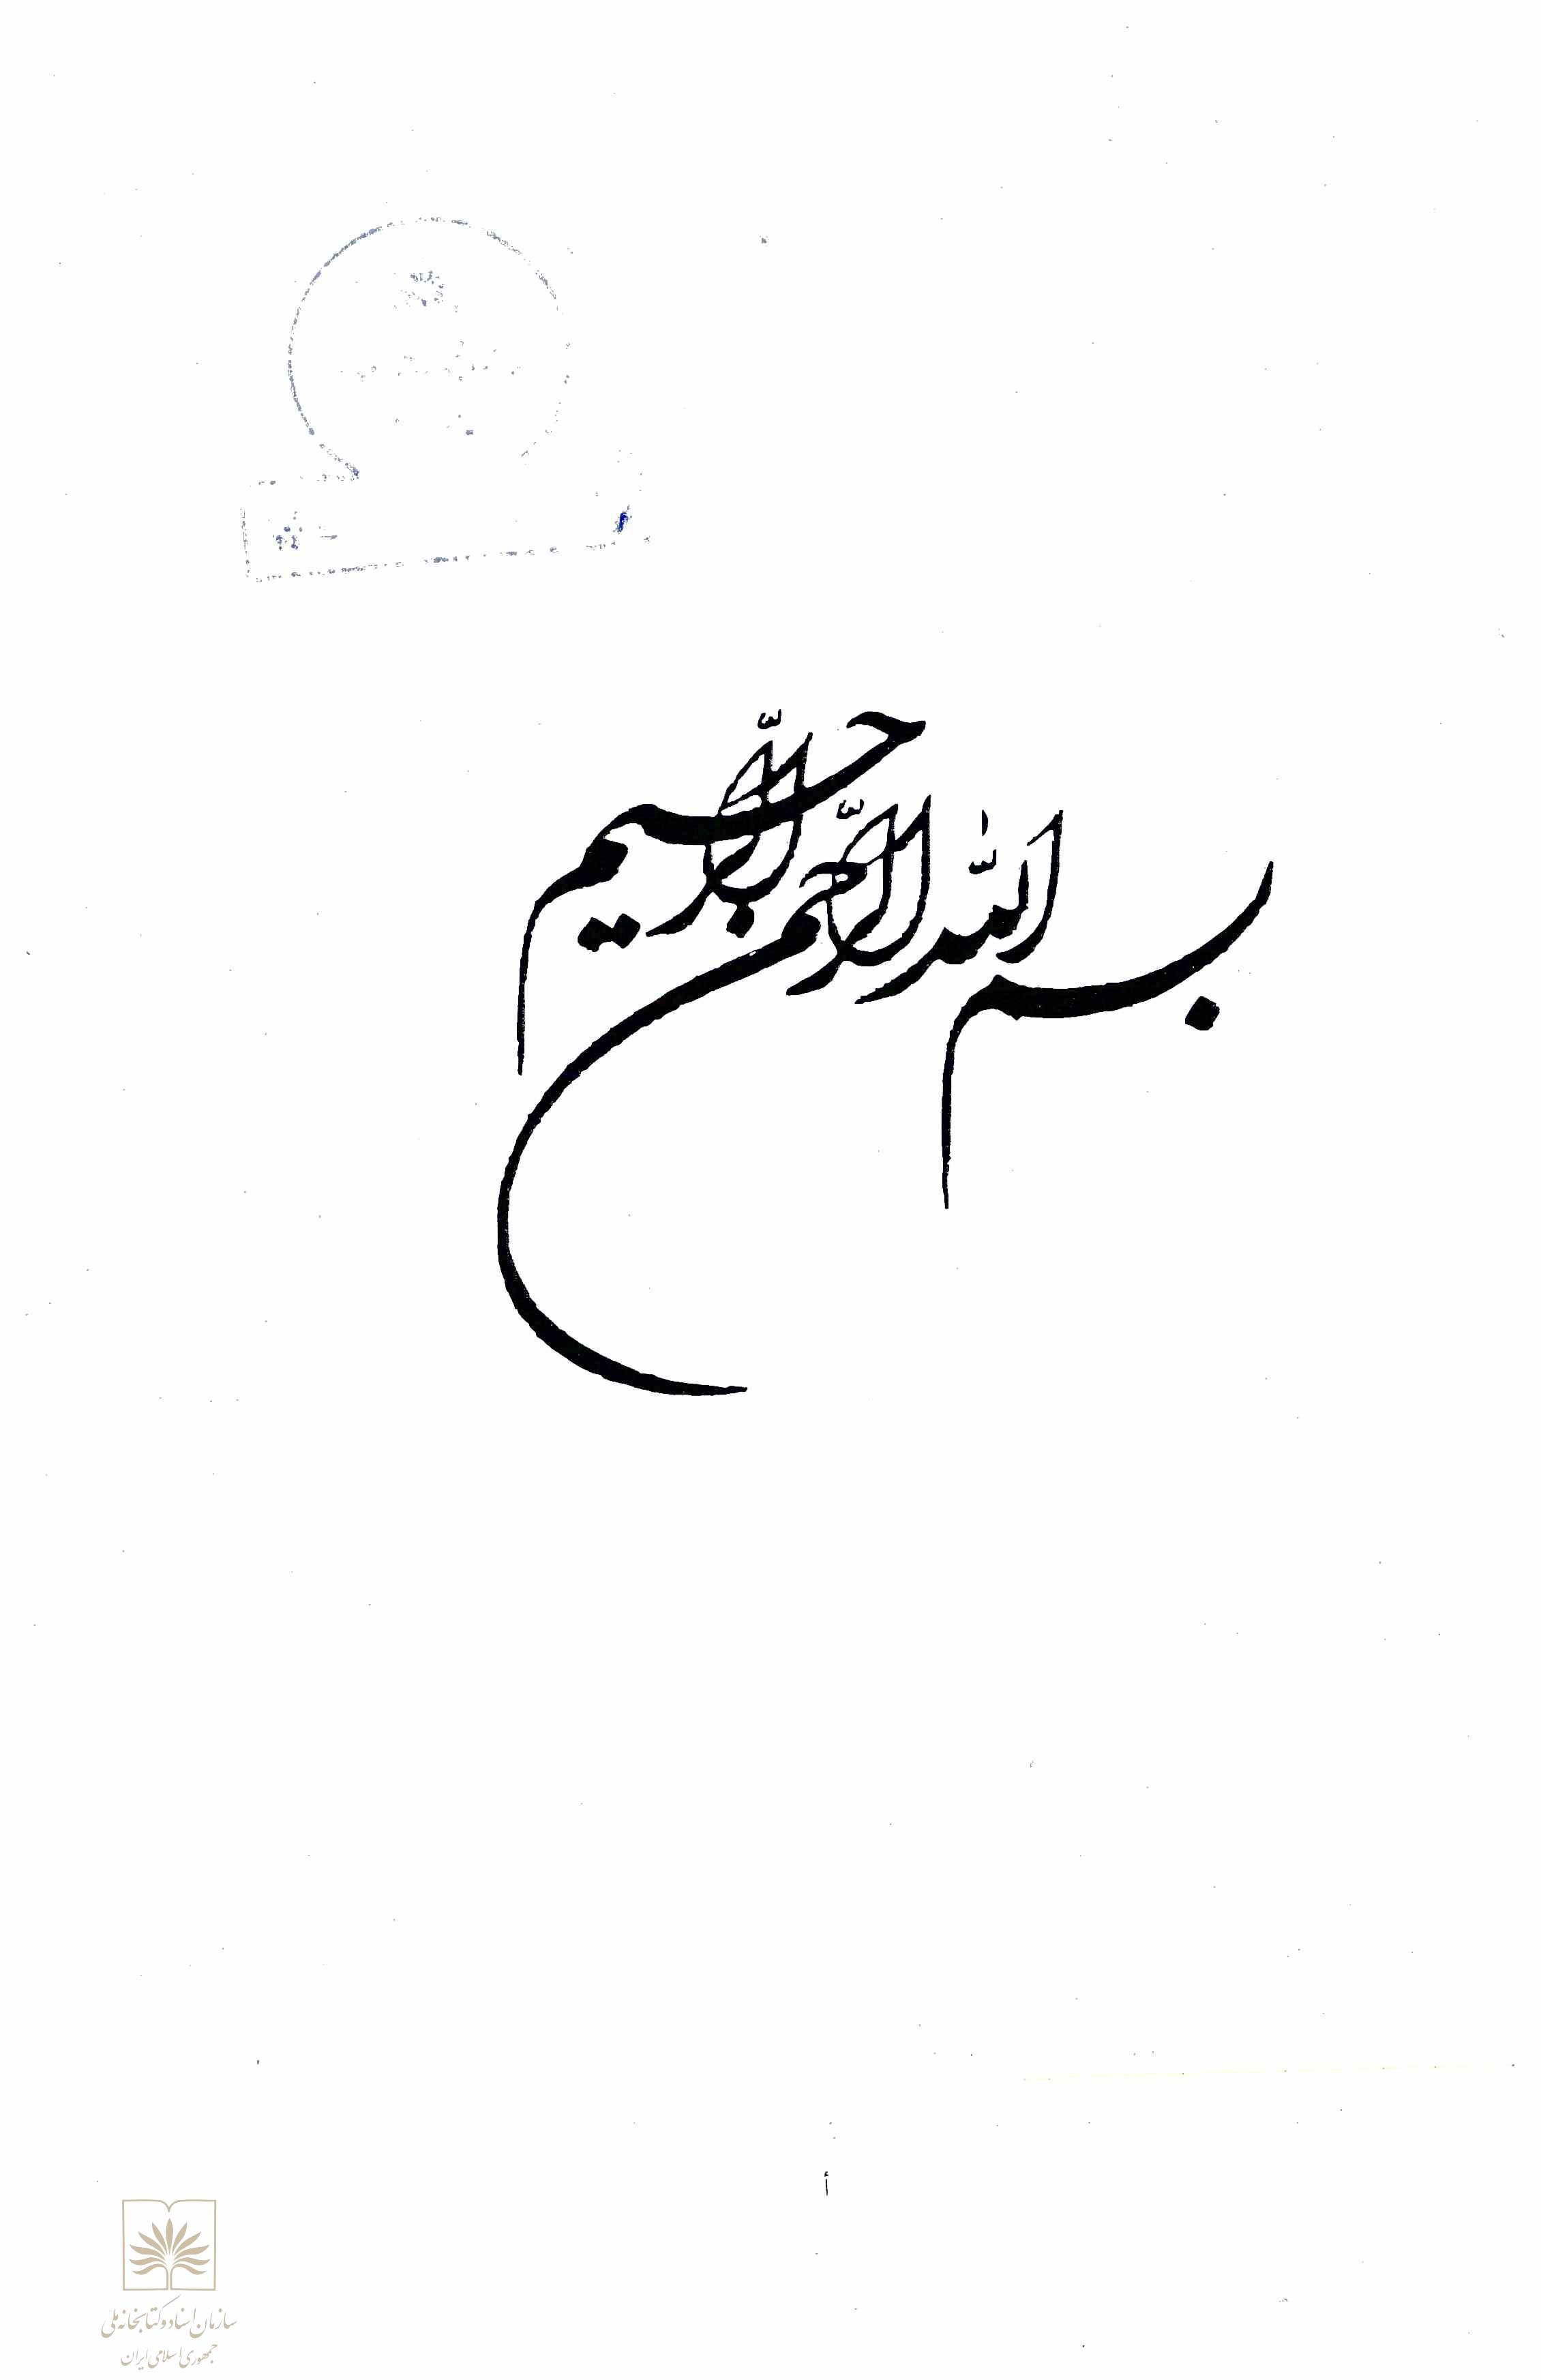 بسم الله الرحمن الرحیم
أ
سازمان اسناد و کتابخانه ملی
جمهوری اسلامی ایران